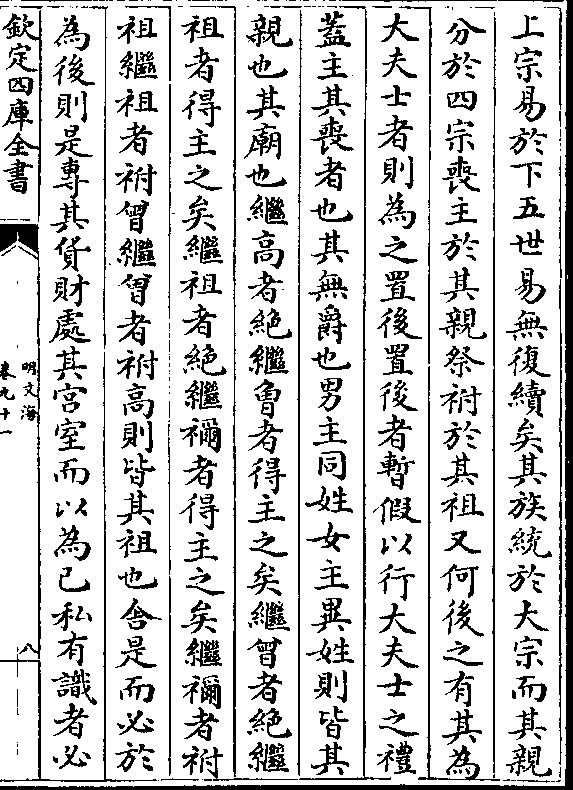 上宗易於下五世易無復續矣其族統於大宗而其親
分於四宗喪主於其親祭祔於其祖又何後之有其為
大夫士者則為之置後置後者暫假以行大夫士之禮
蓋主其喪者也其無爵也男主同姓女主異姓則皆其
親也其廟也繼高者絶繼曾者得主之矣繼曾者絶繼
祖者得主之矣繼祖者絶繼禰者得主之矣繼禰者祔
祖繼祖者祔曾繼曾者祔高則皆其祖也舍是而必於
為後則是專其貨財處其宫室而以為已私有識者必
欽定四庫全書
明文海
卷九十一
八